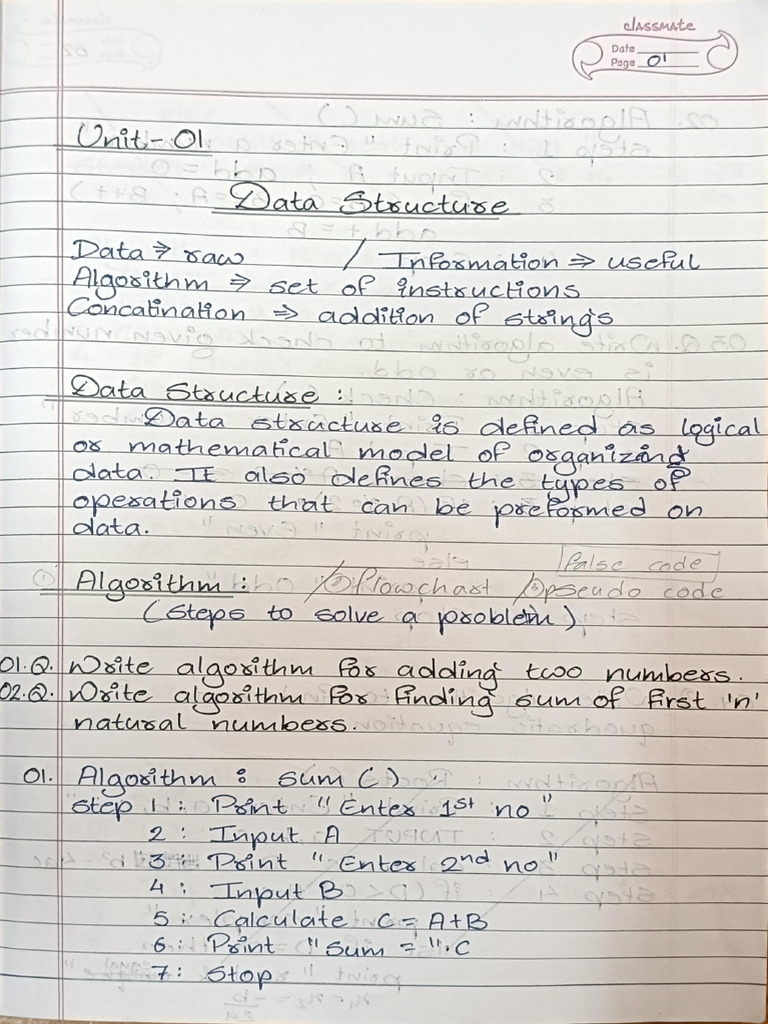 classmate
Date
Page 01
Unit-01
Data Structure
Data ⇒ raw / Information ⇒ useful
Algorithm ⇒ set of instructions
Concatination ⇒ addition of strings
Data Structure :
Data structure is defined as logical
or mathematical model of organizind
data. It also defines the types of
operations that can be preformed on
data.
false code
① Algorithm : /② flowchart /③ pseudo code
(steps to solve a problem)
01.Q. Write algorithm for adding two numbers.
02.Q. Write algorithm for finding sum of first 'n'
natural numbers.
01. Algorithm : sum ( )
step 1 : Print " Enter 1st no "
2 : Input A
3 : Print " Enter 2nd no "
4 : Input B
5 : Calculate C = A+B
6 : Print " Sum = ". C
7 : Stop